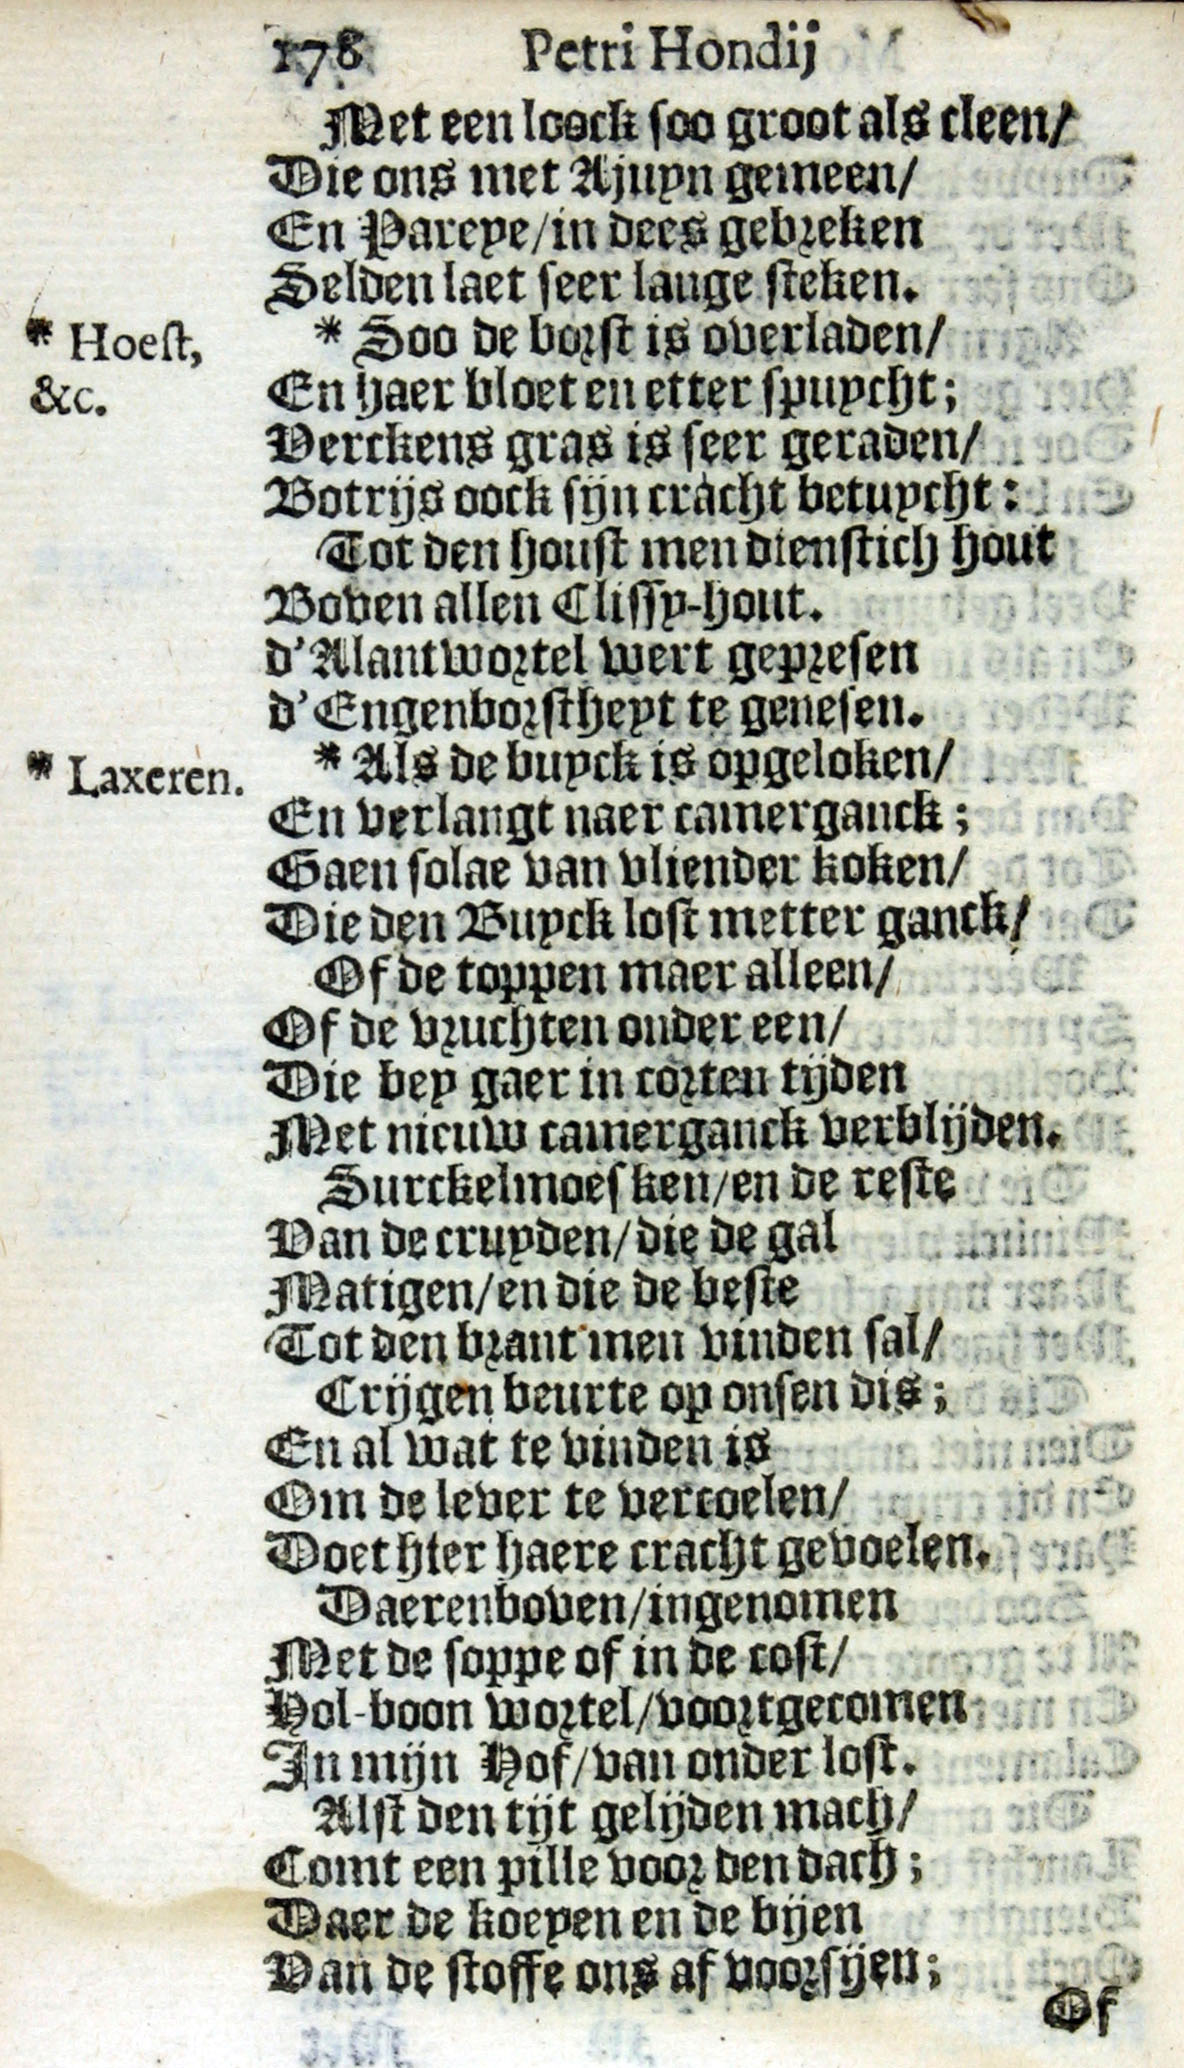 178 Petri Hondij
Met een loock soo groot als cleen/
Die ons met Ajuyn gemeen/
En Pareye/in dees gebreken
Selden laet seer lange steken.
* Hoest,
&c.
* Soo de borst is overladen/
En haer bloet en etter spuycht;
Verckens gras is seer geraden/
Botrijs oock sijn cracht betuycht:
Tot den houst men dienstich hout
Boven allen Clissy-hout.
d'Alantwortel wert gepresen
d'Engenborstheyt te genesen.
* Laxeren.
* Als de buyck is opgeloken/
En verlangt naer camerganck;
Gaen solae van vliender koken/
Die den Buyck lost metter ganck/
Of de toppen maer alleen/
Of de vruchten onder een/
Die bey gaer in corten tijden
Met nieuw camerganck verblijden.
Surckelmoesken/en de reste
Van de cruyden/die de gal
Matigen/en die de beste
Tot den brant men vinden sal/
Crijgen beurte op onsen dis;
En al wat te vinden is
Om de lever te vercoelen/
Doet hier haere cracht gevoelen.
Daerenboven/ingenomen
Met de soppe of in de cost/
Hol-boon wortel/voortgecomen
In mijn Hof/van onder lost.
Alst den tijt gelijden mach/
Comt een pille voor den dach;
Daer de koeyen en de bijen
Van de stoffe ons af voorsijen;
Of